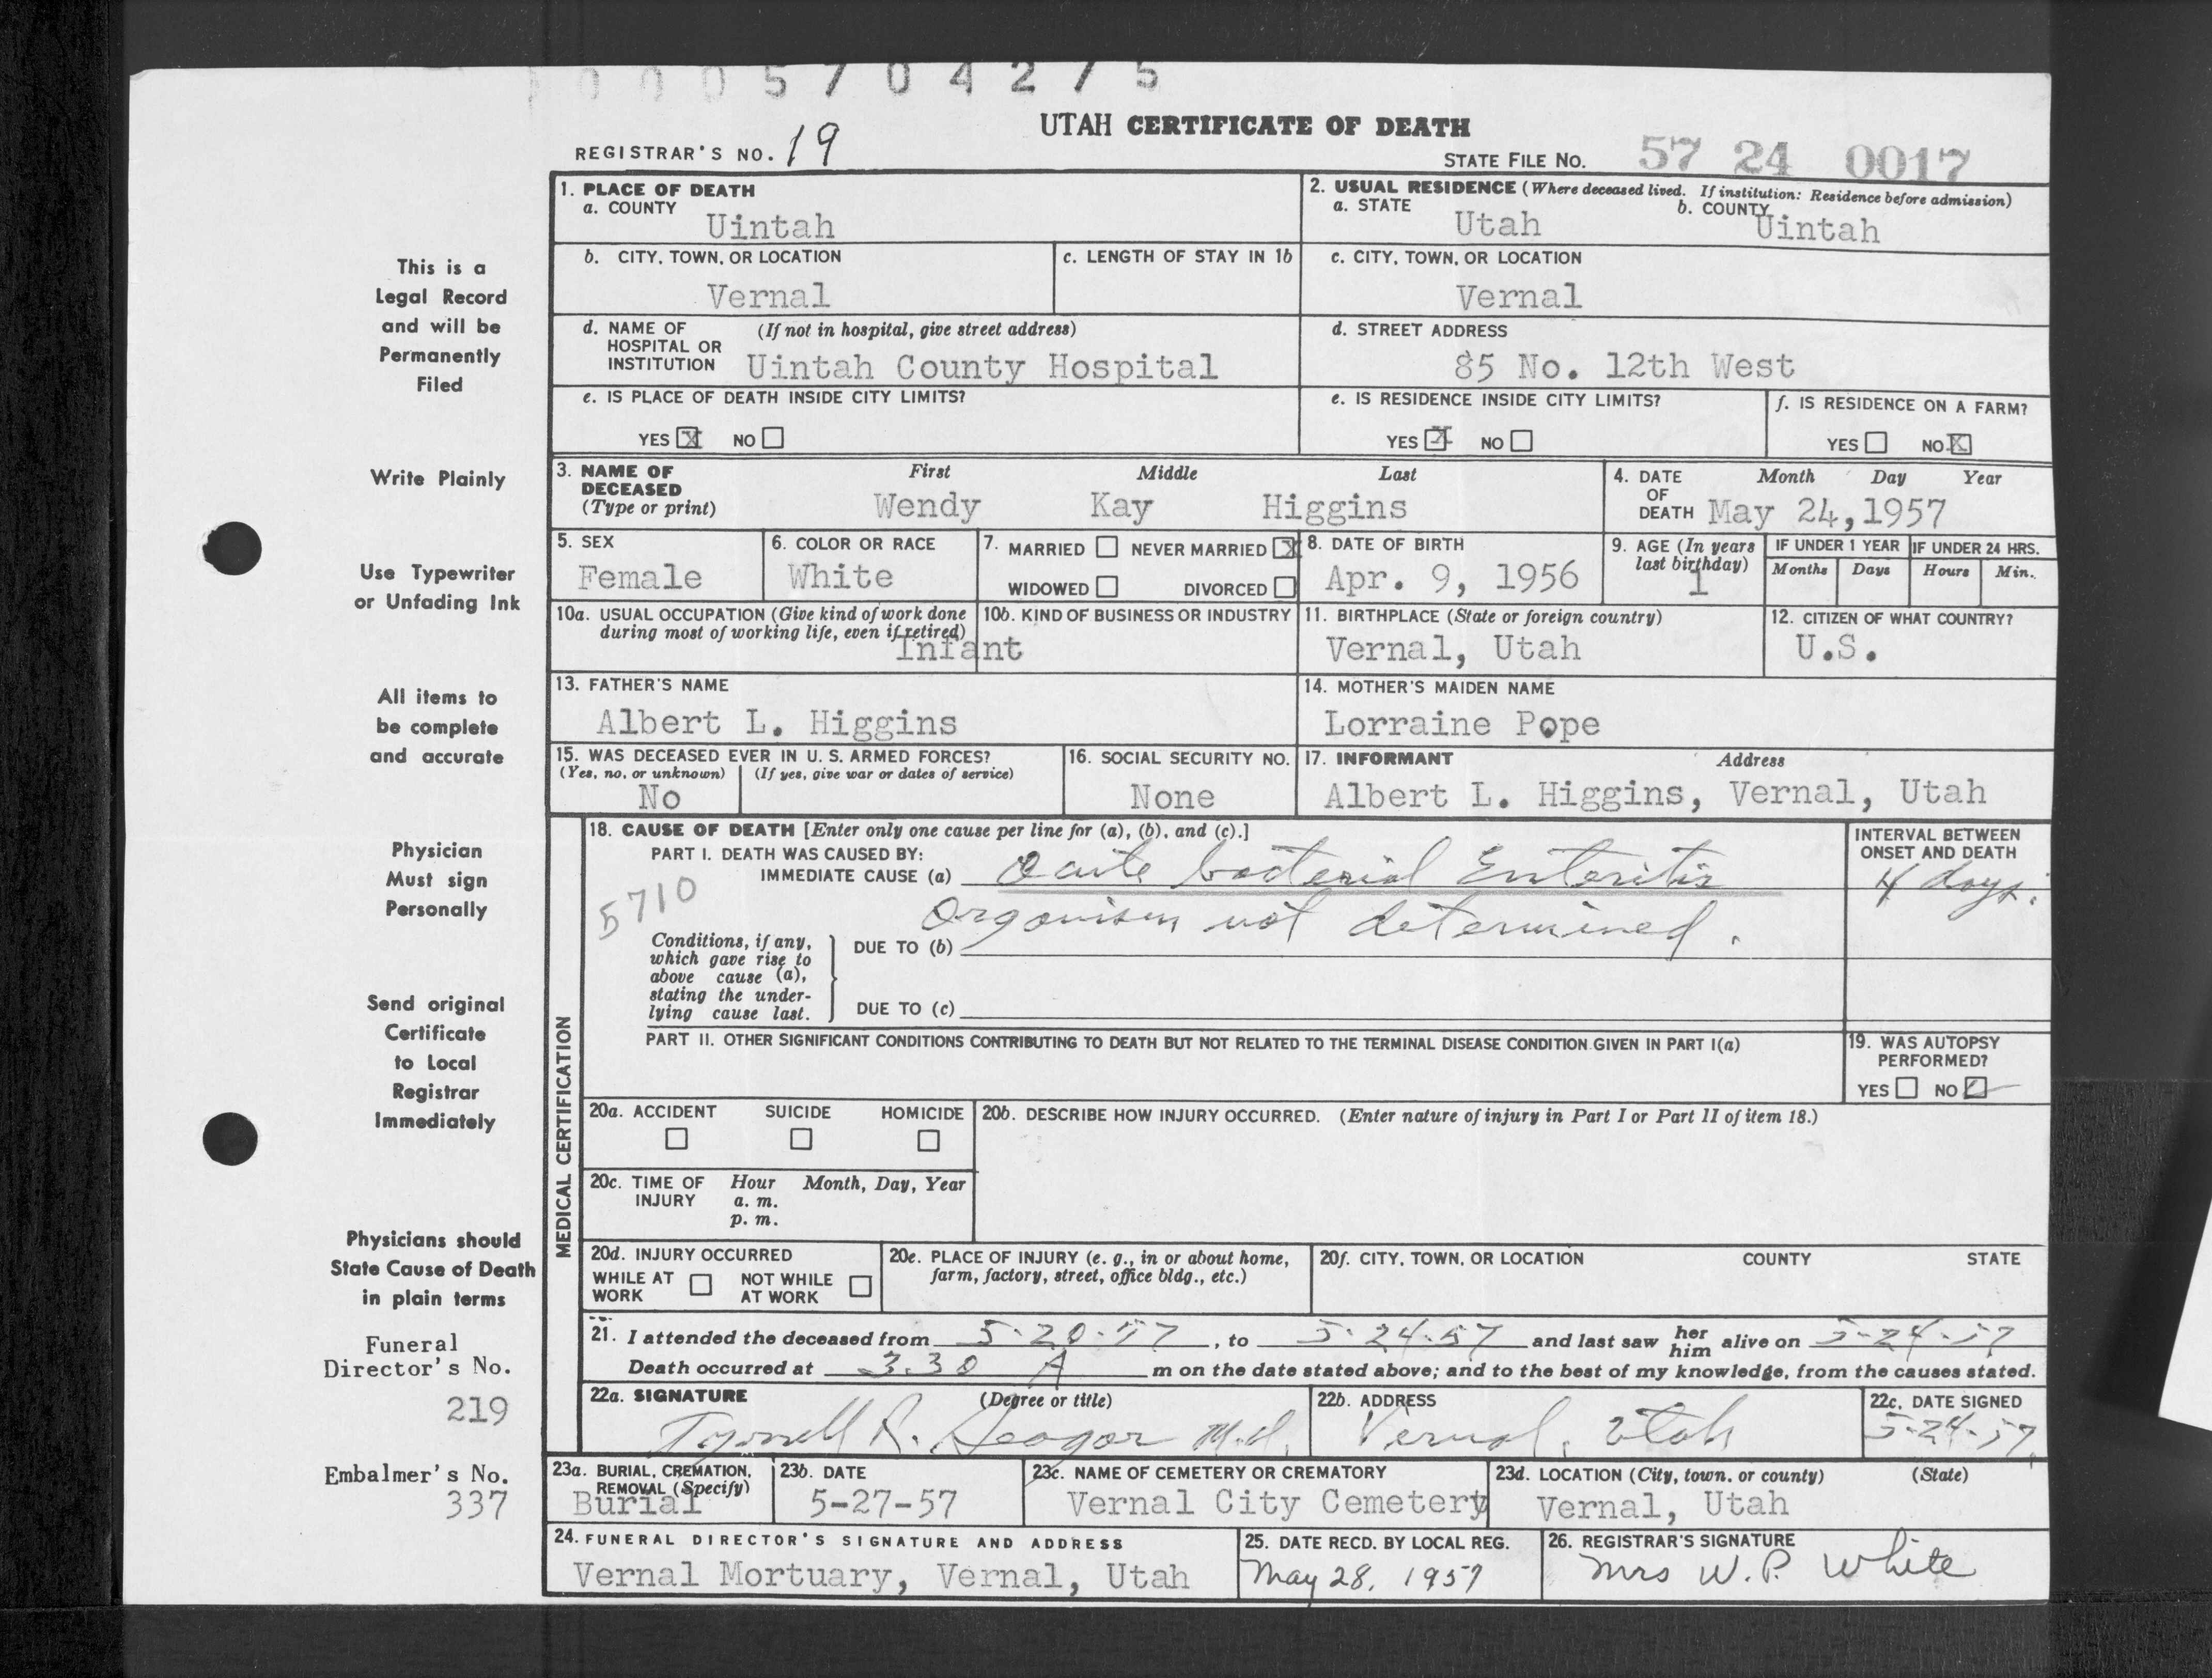 0005704275
UTAH CERTIFICATE OF DEATH
REGISTRAR'S NO. 19
STATE FILE NO. 57 24 0017
This is a
Legal Record
and will be
Permanently
Filed
Write Plainly
Use Typewriter
or Unfading Ink
All items to
be complete
and accurate
Physician
Must sign
Personally
Send original
Certificate
to Local
Registrar
Immediately
Physicians should
State Cause of Death
in plain terms
Funeral
Director's No.
219
Embalmer's No.
337
1. PLACE OF DEATH
a. COUNTY
Uintah
2. USUAL RESIDENCE (Where deceased lived. If institution: Residence before admission)
a. STATE b. COUNTY
Utah Uintah
b. CITY, TOWN, OR LOCATION
Vernal
c. LENGTH OF STAY IN 1b
c. CITY, TOWN, OR LOCATION
Vernal
d. NAME OF (If not in hospital, give street address)
HOSPITAL OR
INSTITUTION Uintah County Hospital
d. STREET ADDRESS
85 No. 12th West
e. IS PLACE OF DEATH INSIDE CITY LIMITS?
YES X NO
e. IS RESIDENCE INSIDE CITY LIMITS?
YES X NO
f. IS RESIDENCE ON A FARM?
YES NO X
3. NAME OF First Middle Last
DECEASED
(Type or print) Wendy Kay Higgins
4. DATE Month Day Year
OF
DEATH May 24, 1957
5. SEX
Female
6. COLOR OR RACE
White
7. MARRIED NEVER MARRIED X
WIDOWED DIVORCED
8. DATE OF BIRTH
Apr. 9, 1956
9. AGE (In years
last birthday)
1
IF UNDER 1 YEAR IF UNDER 24 HRS.
Months Days Hours Min.
10a. USUAL OCCUPATION (Give kind of work done
during most of working life, even if retired)
Infant
10b. KIND OF BUSINESS OR INDUSTRY
11. BIRTHPLACE (State or foreign country)
Vernal, Utah
12. CITIZEN OF WHAT COUNTRY?
U.S.
13. FATHER'S NAME
Albert L. Higgins
14. MOTHER'S MAIDEN NAME
Lorraine Pope
15. WAS DECEASED EVER IN U. S. ARMED FORCES?
(Yes, no, or unknown) (If yes, give war or dates of service)
No
16. SOCIAL SECURITY NO.
None
17. INFORMANT Address
Albert L. Higgins, Vernal, Utah
MEDICAL CERTIFICATION
18. CAUSE OF DEATH [Enter only one cause per line for (a), (b), and (c).]
PART I. DEATH WAS CAUSED BY:
IMMEDIATE CAUSE (a) Acute bacterial Enteritis
5710
Organism not determined.
Conditions, if any,
which gave rise to
above cause (a),
stating the under-
lying cause last.
DUE TO (b)
DUE TO (c)
INTERVAL BETWEEN
ONSET AND DEATH
4 days.
PART II. OTHER SIGNIFICANT CONDITIONS CONTRIBUTING TO DEATH BUT NOT RELATED TO THE TERMINAL DISEASE CONDITION GIVEN IN PART I(a)
19. WAS AUTOPSY
PERFORMED?
YES NO ✓
20a. ACCIDENT SUICIDE HOMICIDE
20b. DESCRIBE HOW INJURY OCCURRED. (Enter nature of injury in Part I or Part II of item 18.)
20c. TIME OF Hour Month, Day, Year
INJURY a. m.
p. m.
20d. INJURY OCCURRED
WHILE AT NOT WHILE
WORK AT WORK
20e. PLACE OF INJURY (e. g., in or about home,
farm, factory, street, office bldg., etc.)
20f. CITY, TOWN, OR LOCATION COUNTY STATE
21. I attended the deceased from 5-20-57, to 5-24-57 and last saw her him alive on 5-24-57
Death occurred at 3:30 A m on the date stated above; and to the best of my knowledge, from the causes stated.
22a. SIGNATURE (Degree or title)
R. Seager M.d.
22b. ADDRESS
Vernal, Utah
22c. DATE SIGNED
5-24-57
23a. BURIAL, CREMATION,
REMOVAL (Specify)
Burial
23b. DATE
5-27-57
23c. NAME OF CEMETERY OR CREMATORY
Vernal City Cemetery
23d. LOCATION (City, town, or county) (State)
Vernal, Utah
24. FUNERAL DIRECTOR'S SIGNATURE AND ADDRESS
Vernal Mortuary, Vernal, Utah
25. DATE RECD. BY LOCAL REG.
May 28, 1957
26. REGISTRAR'S SIGNATURE
Mrs W. P. White